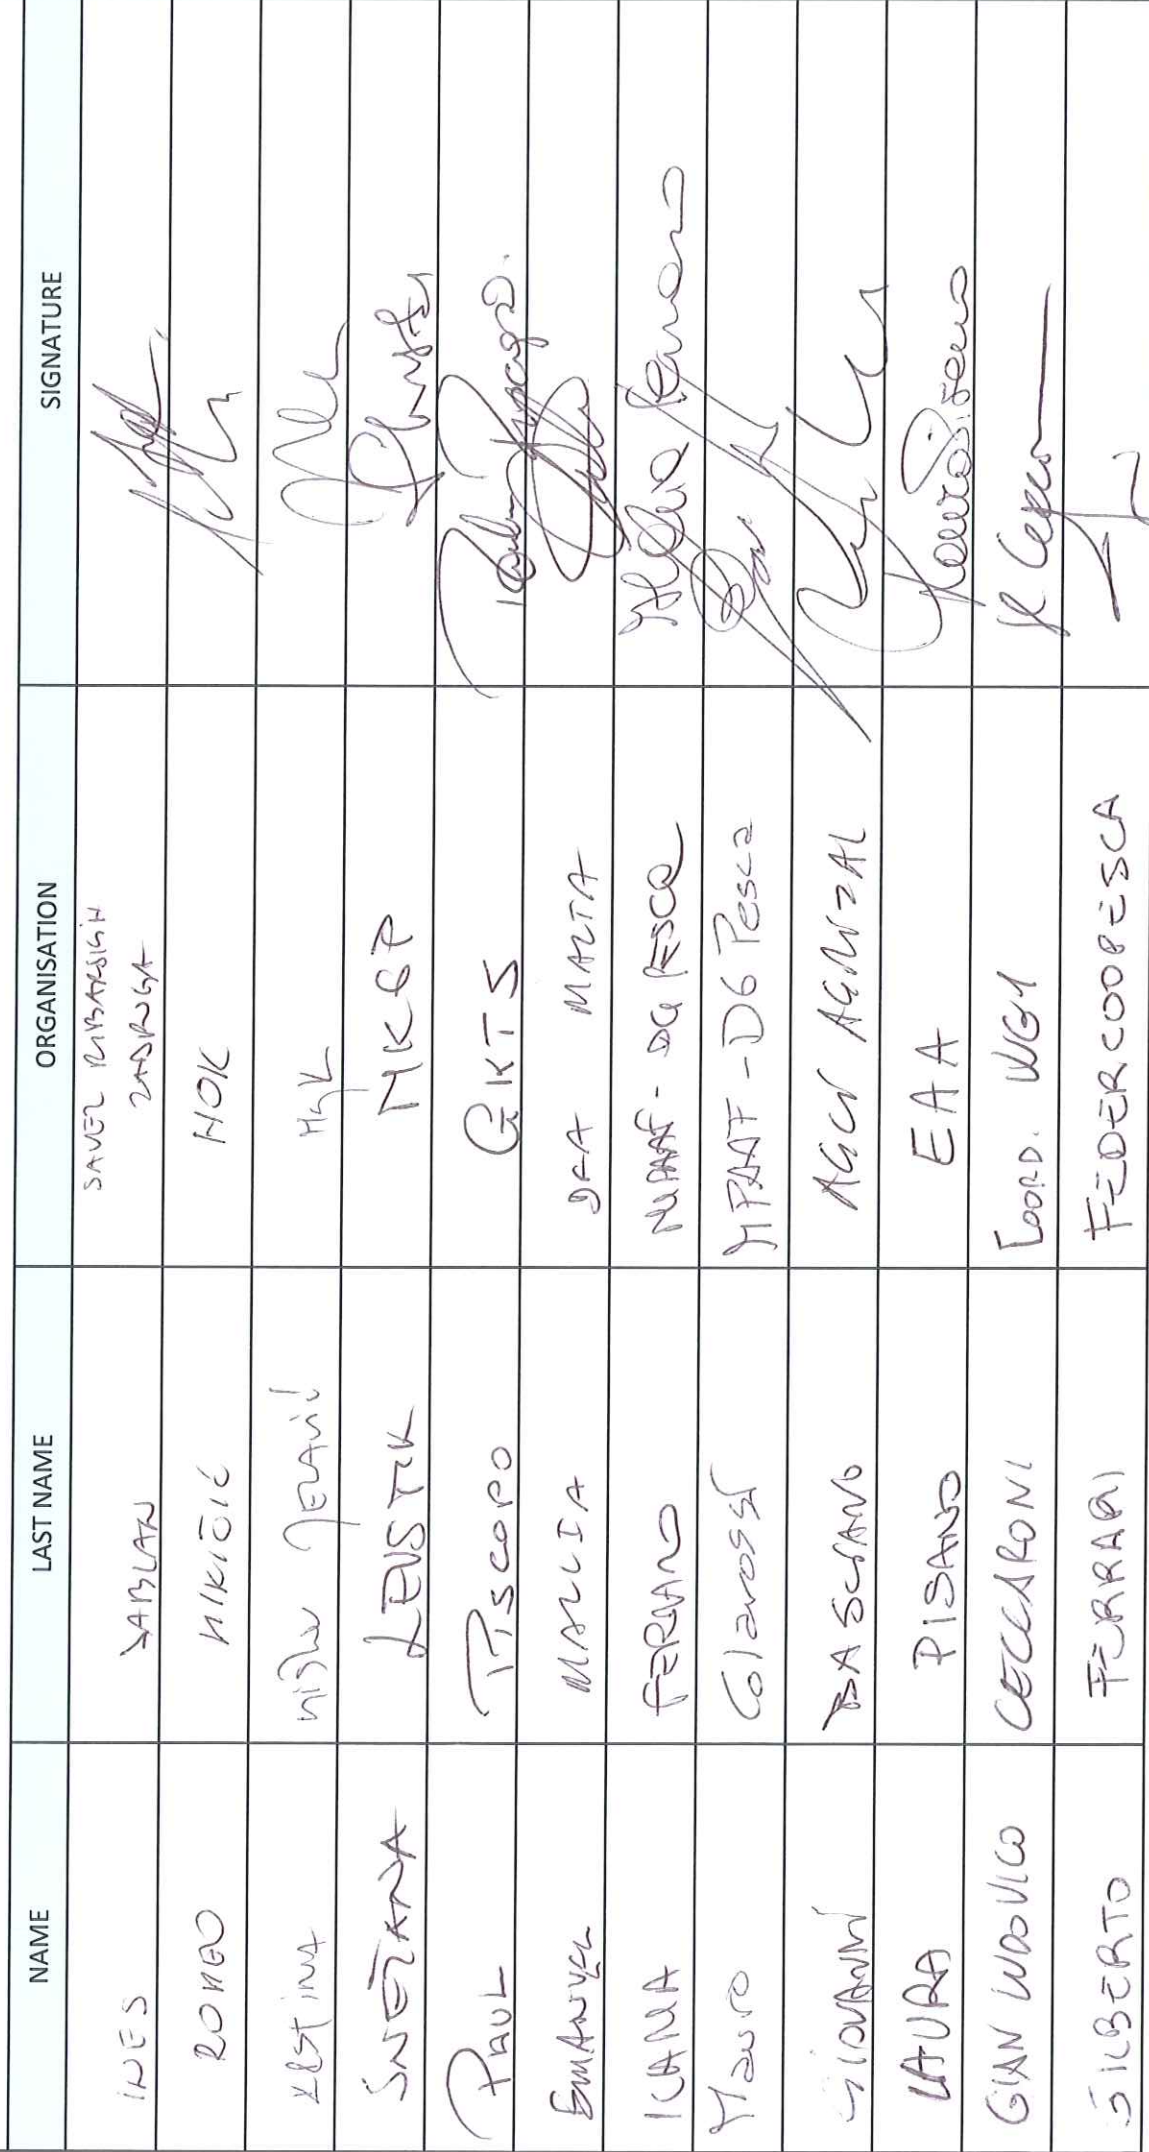 NAME LAST NAME ORGANISATION SIGNATURE
INES JABLAN SAVEZ RIBARSKIH
ZADRUGA
ROMEO MIKIČIĆ HOK
KRSTINA MIŠLOV JELAVIĆ HGK
SNEŽANA LEVSTIK MKGP
PAUL PISCOPO GKTS
EMANUEL MALLIA DFA MALTA
ILARIA FERRARO MIPAAF - DG PESCA
Mauro Colarossi MIPAAF - DG Pesca
GIOVANNI BASCIANO AGCI AGRITAL
LAURA PISANO EAA
GIAN LUDOVICO CECCARONI COORD. WG1
GILBERTO FERRARI FEDERCOOPESCA